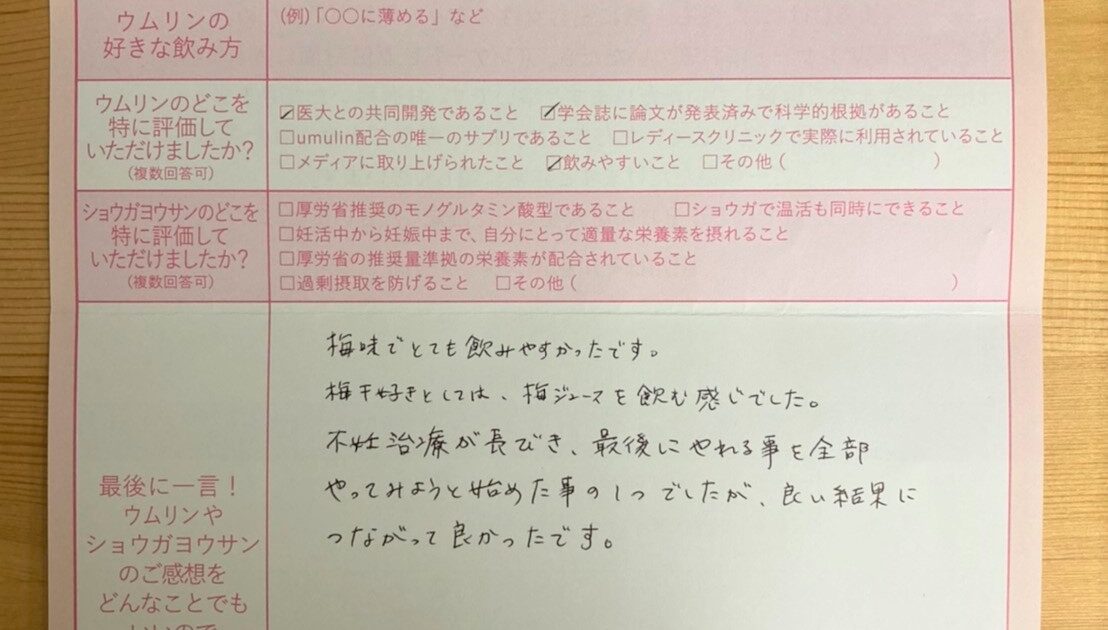 ウムリンの
好きな飲み方
(例)「〇〇に薄める」など
ウムリンのどこを
特に評価して
いただけましたか?
(複数回答可)
☑医大との共同開発であること ☑学会誌に論文が発表済みで科学的根拠があること
□umulin配合の唯一のサプリであること □レディースクリニックで実際に利用されていること
□メディアに取り上げられたこと ☑飲みやすいこと □その他( )
ショウガヨウサンのどこを
特に評価して
いただけましたか?
(複数回答可)
□厚労省推奨のモノグルタミン酸型であること □ショウガで温活も同時にできること
□妊活中から妊娠中まで、自分にとって適量な栄養素を摂れること
□厚労省の推奨量準拠の栄養素が配合されていること
□過剰摂取を防げること □その他( )
最後に一言!
ウムリンや
ショウガヨウサン
のご感想を
どんなことでも
いいので
梅味でとても飲みやすかったです。
梅干好きとしては、梅ジュースを飲む感じでした。
不妊治療が長びき、最後にやれる事を全部
やってみようと始めた事の1つでしたが、良い結果に
つながって良かったです。